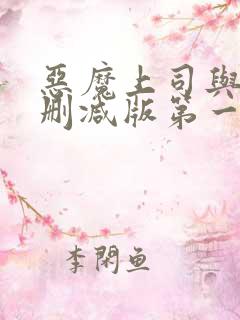 惡魔上司與
刪減版第一
李閑魚